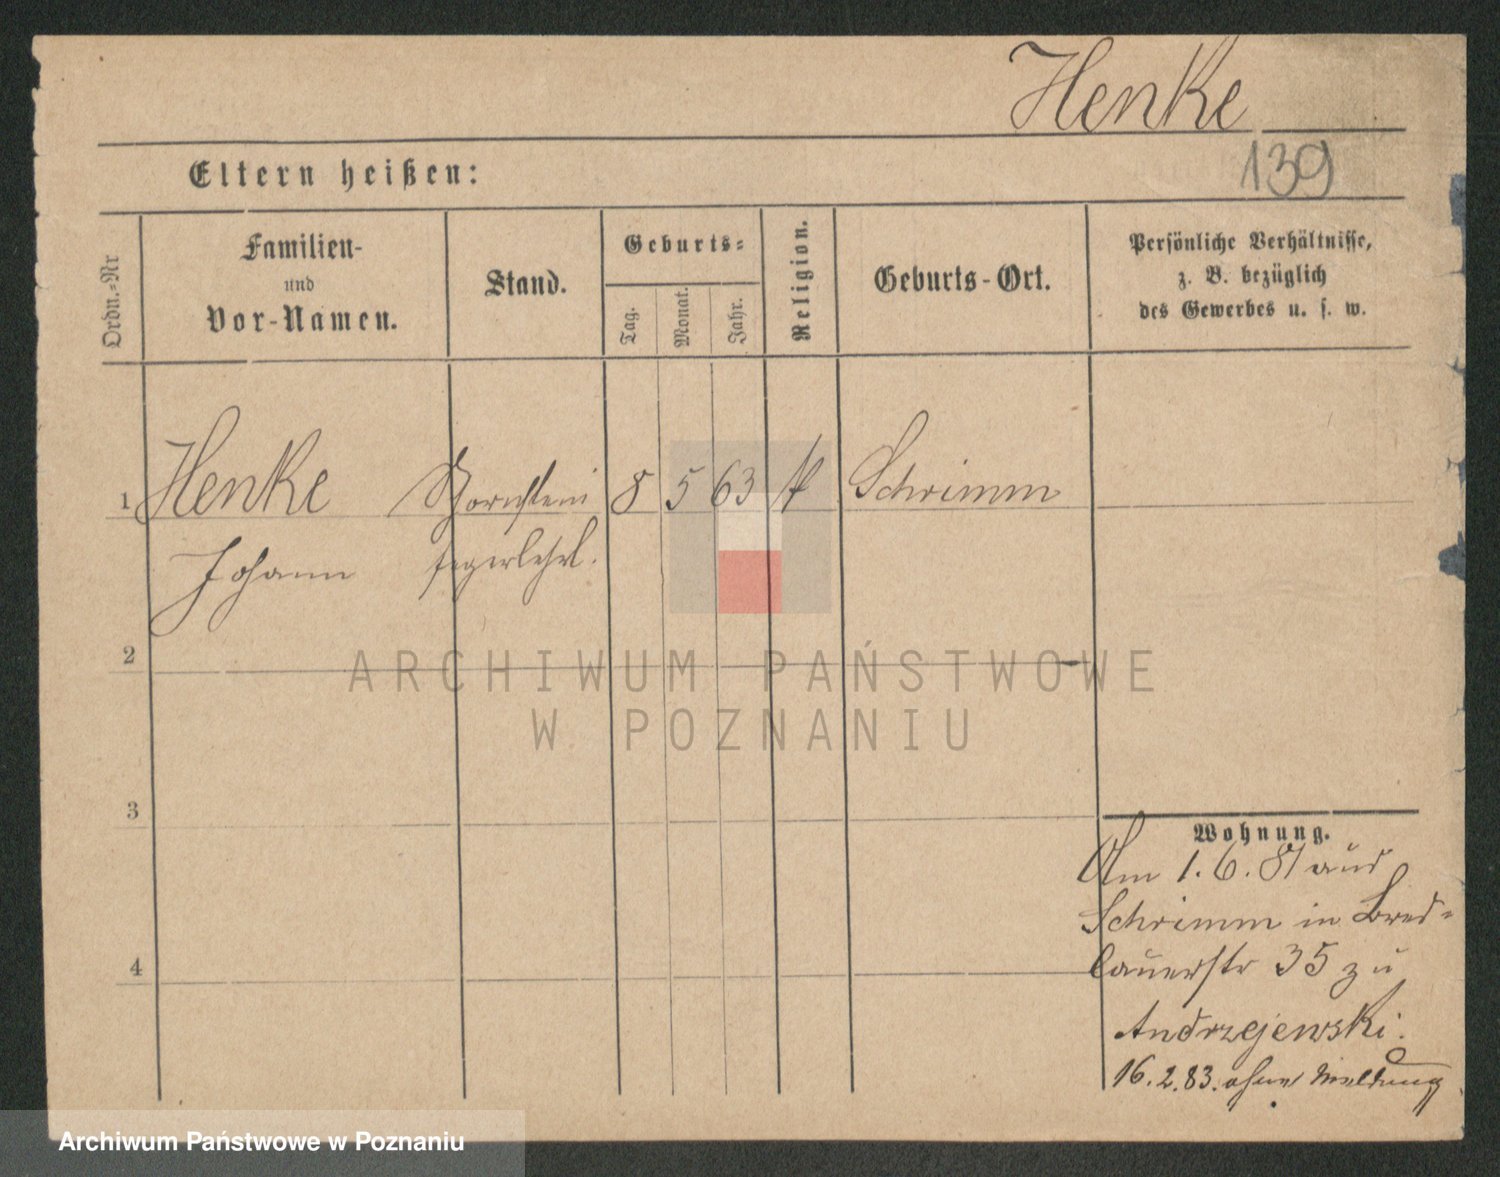 Henke
139
Eltern heißen:
Ordn.=Nr
Familien-
und
Vor-Namen.
Stand.
Geburts=
Tag.
Monat.
Jahr.
Religion.
Geburts-Ort.
Persönliche Verhältnisse,
z. B. bezüglich
des Gewerbes u. s. w.
1 Henke Schornstein 8 5 63 k Schrimm
Johann fegerlehrl.
2
3
4
Wohnung.
Am 1.6.81 aus
Schrimm in Bres=
lauerstr 35 zu
Andrzejewski.
16.2.83. ohne Meldung
ARCHIWUM PAŃSTWOWE
W POZNANIU
Archiwum Państwowe w Poznaniu